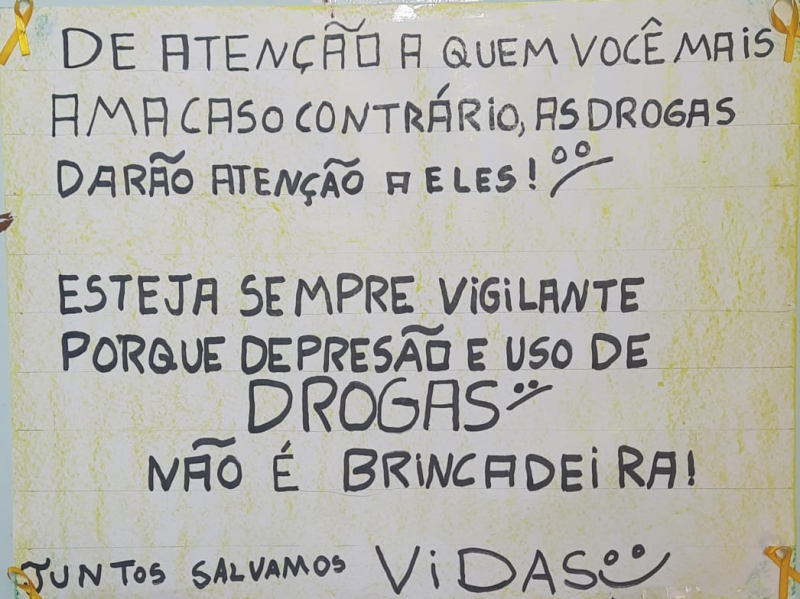 DE ATENÇÃO A QUEM VOCÊ MAIS
AMA CASO CONTRÁRIO, AS DROGAS
DARÃO ATENÇÃO A ELES!
ESTEJA SEMPRE VIGILANTE
PORQUE DEPRESÃO E USO DE
DROGAS
NÃO É BRINCADEIRA!
JUNTOS SALVAMOS VIDAS